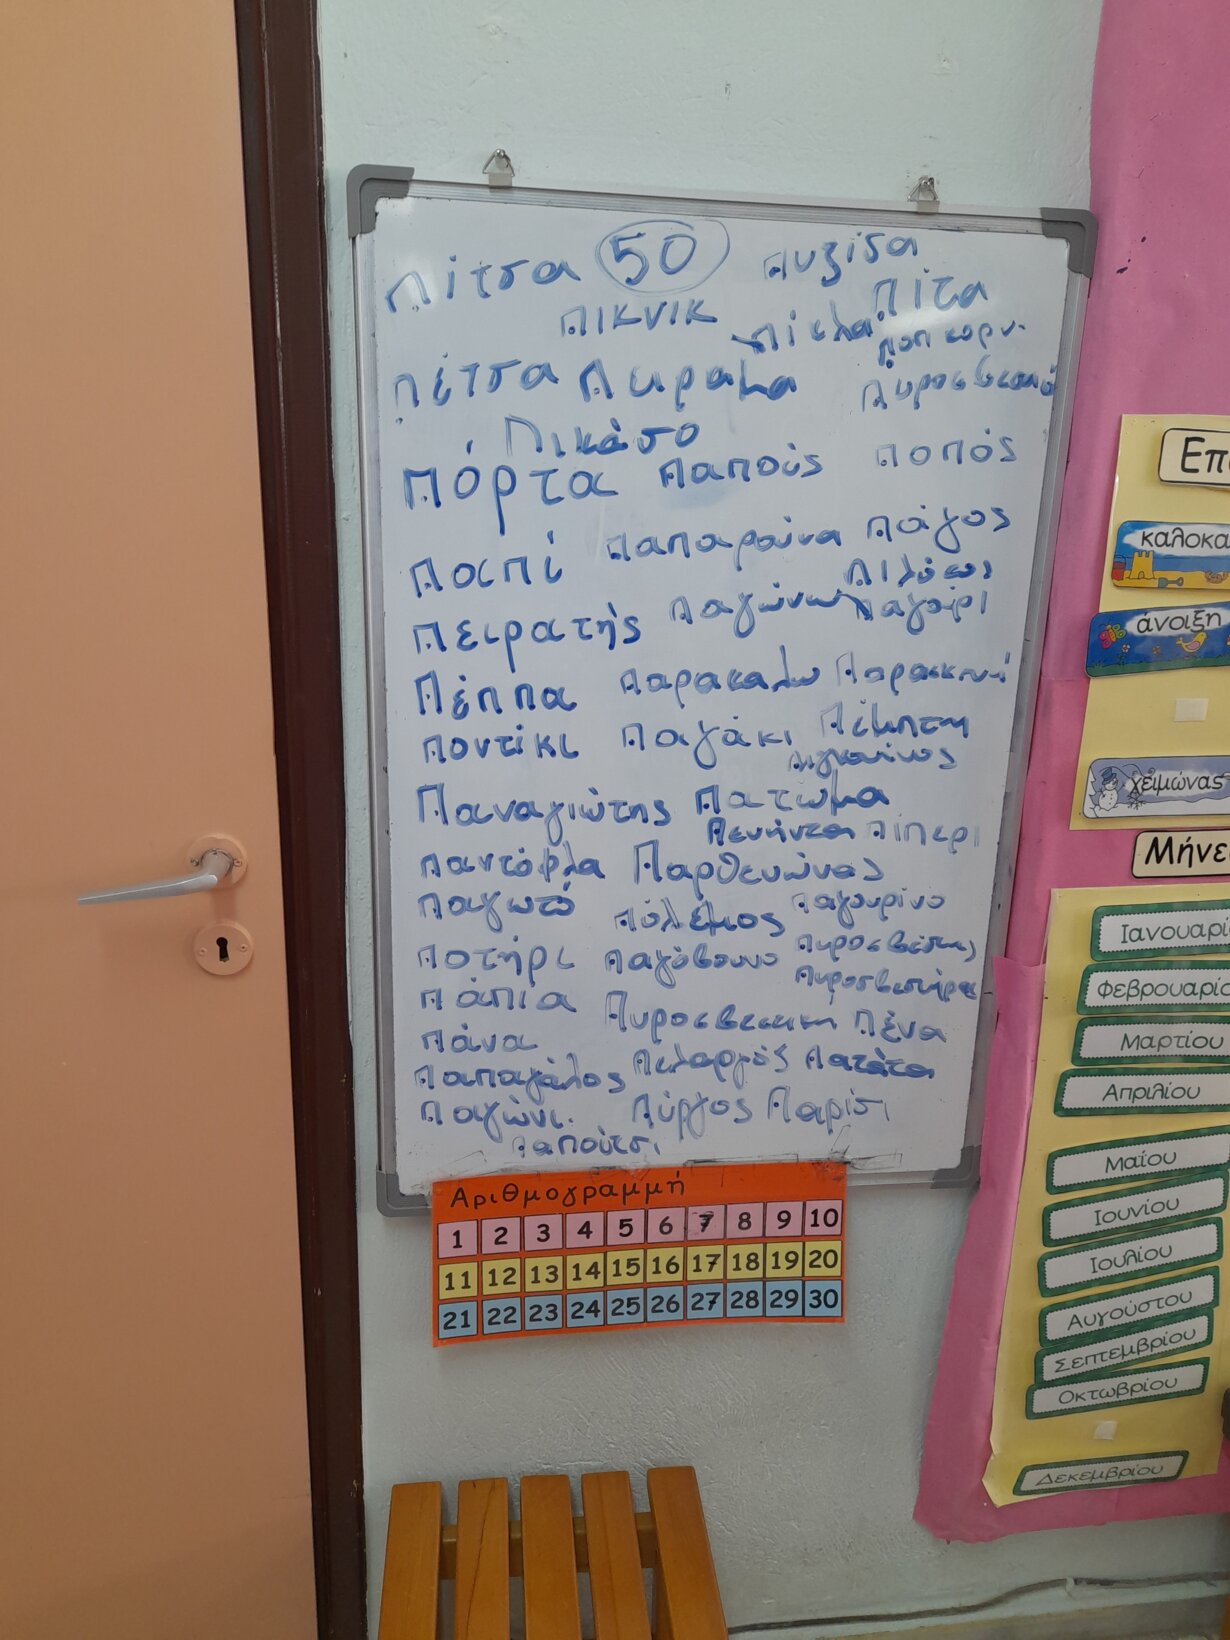 Πίτσα 50 Πυξίδα
Πίτα
πικνικ πίκλα ποπ κορν
Πέτσα
Πικάσο
Πόρτα παπούς ποπός
παπί παπαρούνα πάγος
Πειρατής παγώνω παγούρι
Πέππα παρακαλω Παρασκευή
ποντίκι Παγάκι Πέμπτη
πιγκουίνος
Παναγιώτης Πατωμα
Πενήντα πιπερι
παντόφλα Παρθενώνας
παγωτό πόλεμος παγουρίνο
ποτήρι παγόβουνο πυροσβέστης
πάπια
Πυροσβεστικη πένα
πάνα
παπαγάλος πελαργός πατάτα
παγώνι Πύργος Παρίσι
παπούτσι
Αριθμογραμμή
1 2 3 4 5 6 7 8 9 10
11 12 13 14 15 16 17 18 19 20
21 22 23 24 25 26 27 28 29 30
Επ
καλοκα
άνοιξη
χειμώνας
Μήνε
Ιανουαρί
Φεβρουαρίο
Μαρτίου
Απριλίου
Μαΐου
Ιουνίου
Ιουλίου
Αυγούστου
Σεπτεμβρίου
Οκτωβρίου
Δεκεμβρίου